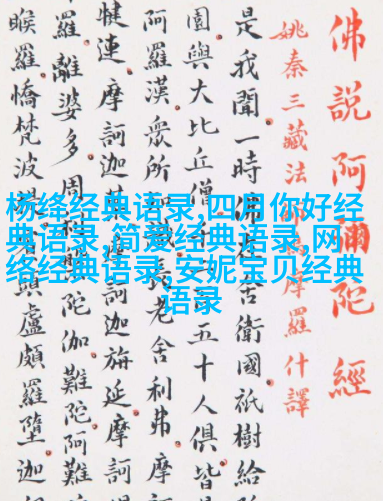 杨绛经典语录,四月你好经
典语录,简爱经典语录,网
络经典语录,安妮宝贝经典
语录
佛說阿彌陀經
姚秦三藏法摩羅什譯
是我聞一時佛在舍衛國祇樹給
園與大比丘僧五十人俱皆
阿羅漢眾所長老舍利弗摩訶
犍連摩訶迦葉摩訶迦旃延摩訶
羅離婆多周陀伽難陀阿難
睺羅憍梵波頭盧頗羅墮迦